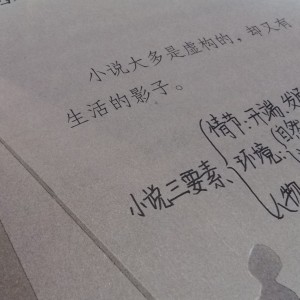 小说大多是虚构的,却又有
生活的影子。
小说三要素
情节:开端、发
环境:自然
人物